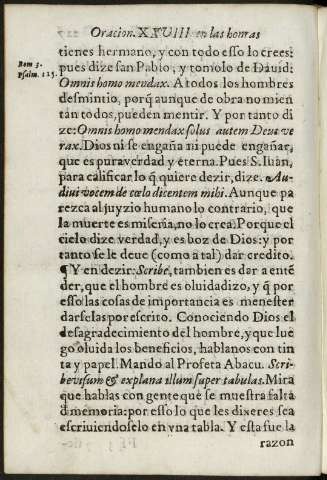 Oracion. XXVIII en las honras
tienes hermano, y con todo esso lo crees:
Rom 3.
Psalm. 115.
pues dize san Pablo, y tomolo de Dauid:
Omnis homo mendax. A todos los hombres
desmintio, porq̃ aunque de obra no mien
tan todos, pueden mentir. Y por tanto di
ze: Omnis homo mendax solus autem Deus ve
rax. Dios ni se engaña ni puede engañar,
que es pura verdad y eterna. Pues S. Iuan,
para calificar lo q̃ quiere dezir, dize. Au-
diui vocem de cœlo dicentem mihi. Aunque pa
rezca al juyzio humano lo contrario, que
la muerte es miseria, no lo crea: Porque el
cielo dize verdad, y es boz de Dios: y por
tanto se le deue (como a tal) dar credito.
¶ Y en dezir: Scribe, tambien es dar a entẽ
der, que el hombre es oluidadizo, y q̃ por
esso las cosas de importancia es menester
darselas por escrito. Conociendo Dios el
desagradecimiento del hombre, y que lue
go oluida los beneficios, hablanos con tin
ta y papel. Mando al Profeta Abacu. Scri-
be visum & explana illum super tabulas. Mira
que hablas con gente que se muestra falta
d̃ memoria: por esso lo que les dixeres sea
escriuiendoselo en vna tabla. Y esta fue la
razon